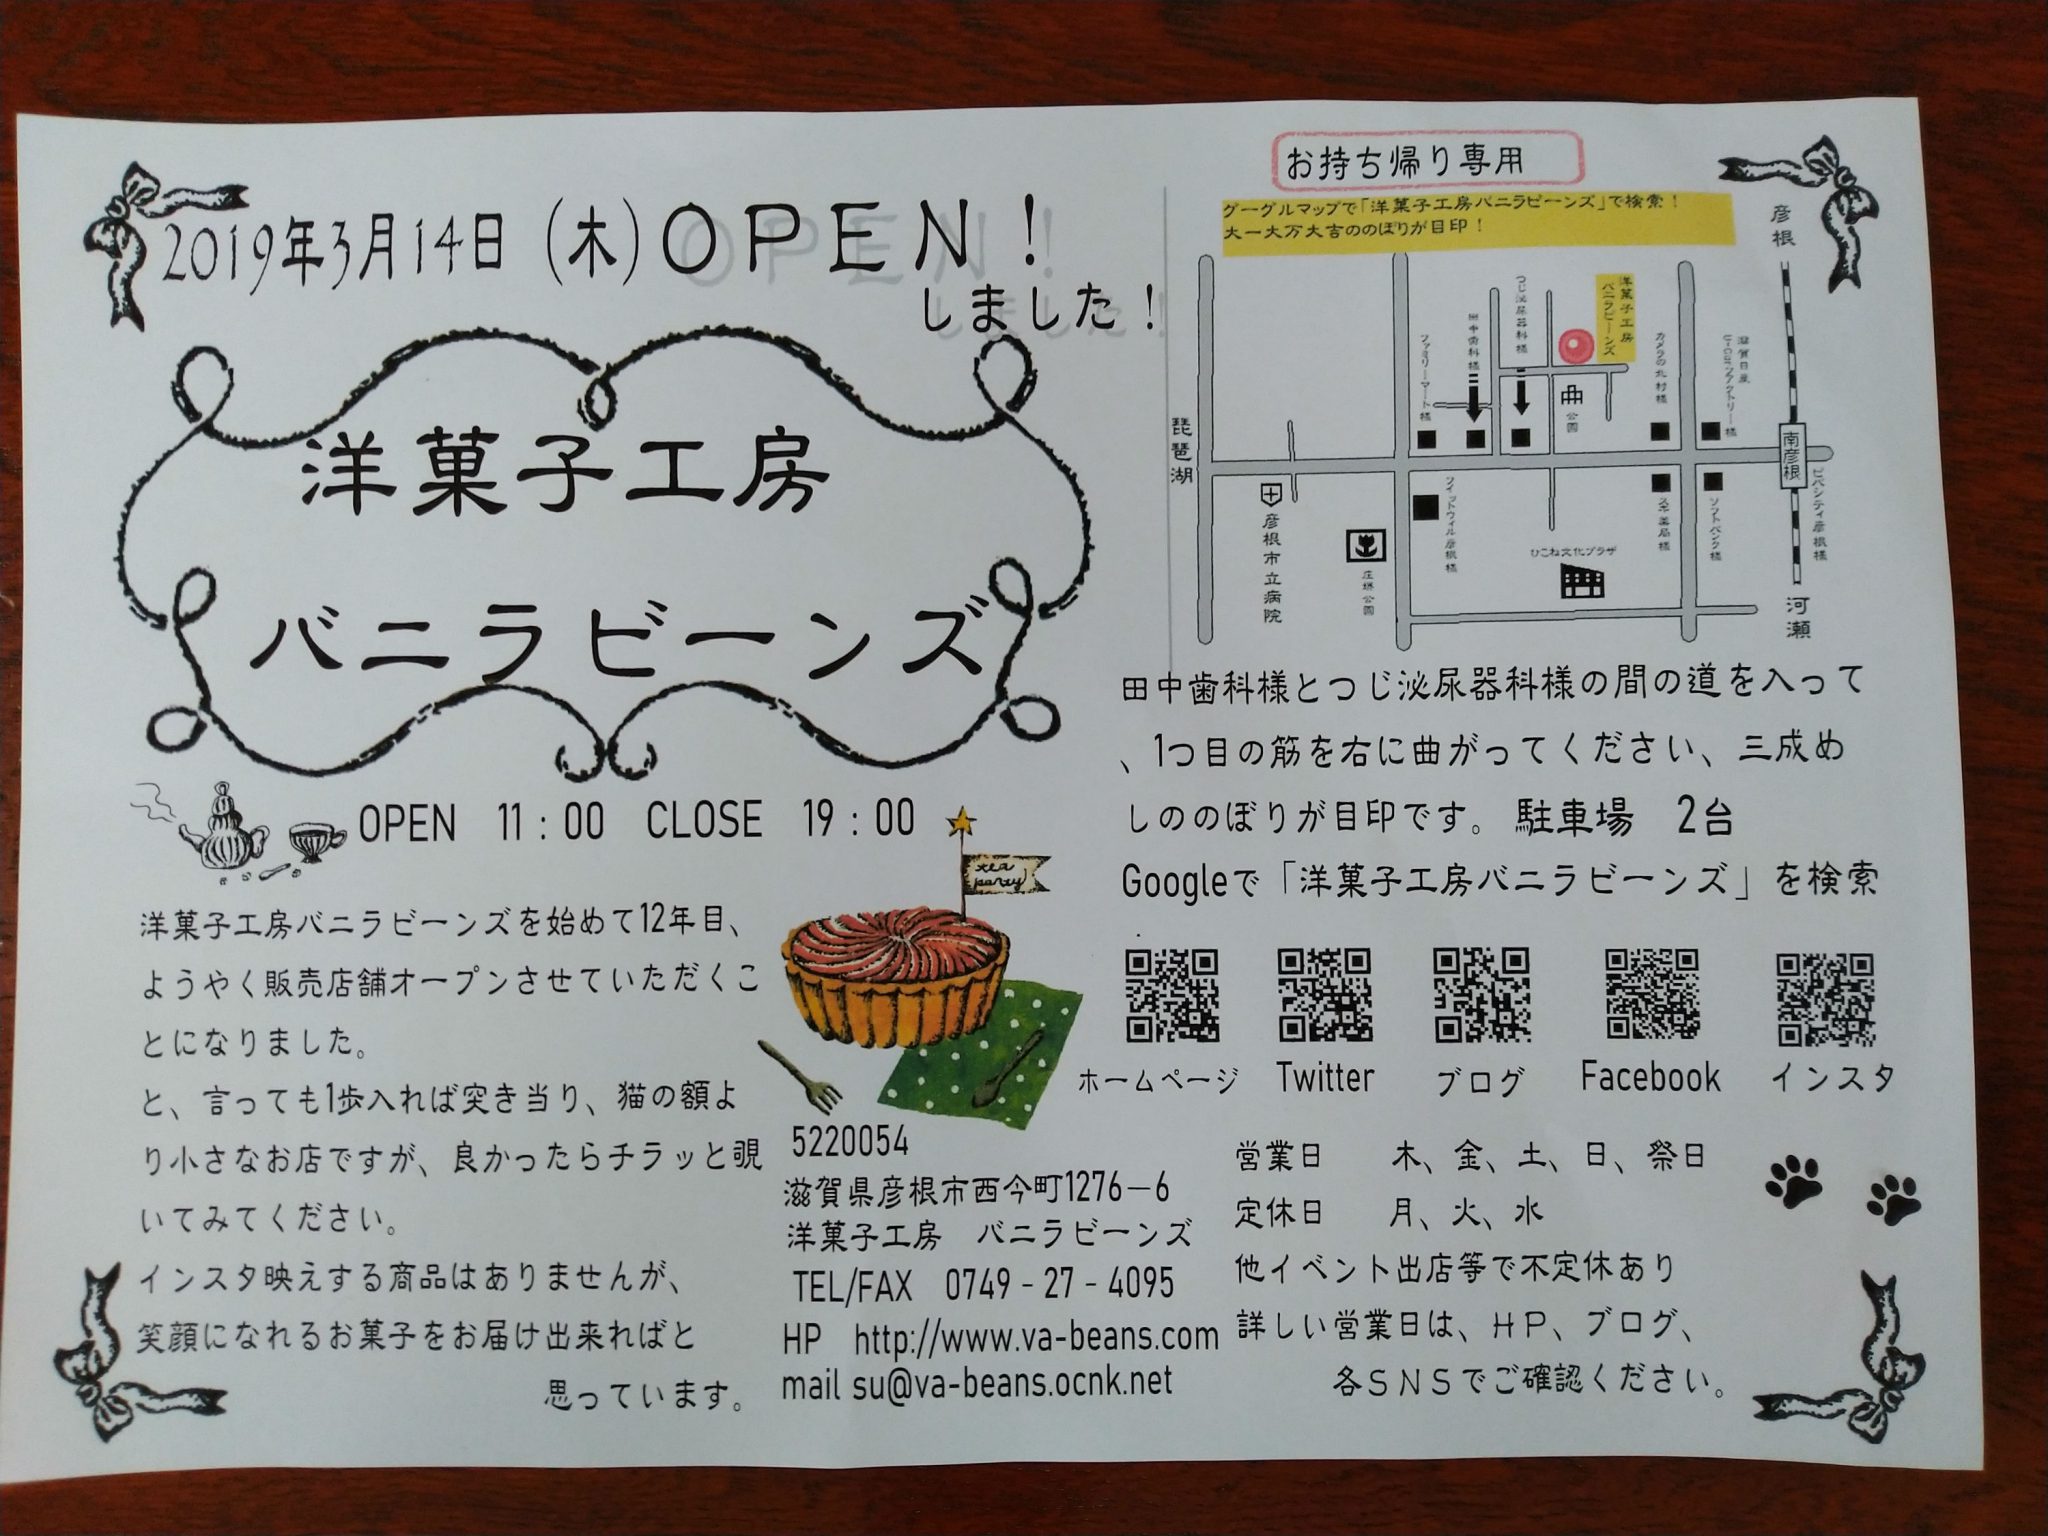 2019年3月14日（木）OPEN！
しました！
洋菓子工房
バニラビーンズ
OPEN 11：00 CLOSE 19：00
tea
party
洋菓子工房バニラビーンズを始めて12年目、
ようやく販売店舗オープンさせていただくこ
とになりました。
と、言っても1歩入れば突き当り、猫の額よ
り小さなお店ですが、良かったらチラッと覗
いてみてください。
インスタ映えする商品はありませんが、
笑顔になれるお菓子をお届け出来ればと
思っています。
5220054
滋賀県彦根市西今町1276－6
洋菓子工房 バニラビーンズ
TEL/FAX 0749‐27‐4095
HP http://www.va-beans.com
mail su@va-beans.ocnk.net
お持ち帰り専用
グーグルマップで「洋菓子工房バニラビーンズ」で検索！
大一大万大吉ののぼりが目印！
彦根
洋菓子工房
バニラビーンズ
つじ泌尿器科様
田中歯科様
ファミリーマート様
カメラの北村様
滋賀日産
U-carファクトリー様
公園
琵琶湖
南彦根
ビバシティ彦根様
彦根市立病院
庄堺公園
フィットウィル彦根様
ひこね文化プラザ
スギ薬局様
ソフトバンク様
河瀬
田中歯科様とつじ泌尿器科様の間の道を入って
、1つ目の筋を右に曲がってください、三成め
しののぼりが目印です。駐車場 2台
Googleで「洋菓子工房バニラビーンズ」を検索
ホームページ
Twitter
ブログ
Facebook
インスタ
営業日 木、金、土、日、祭日
定休日 月、火、水
他イベント出店等で不定休あり
詳しい営業日は、ＨＰ、ブログ、
各ＳＮＳでご確認ください。